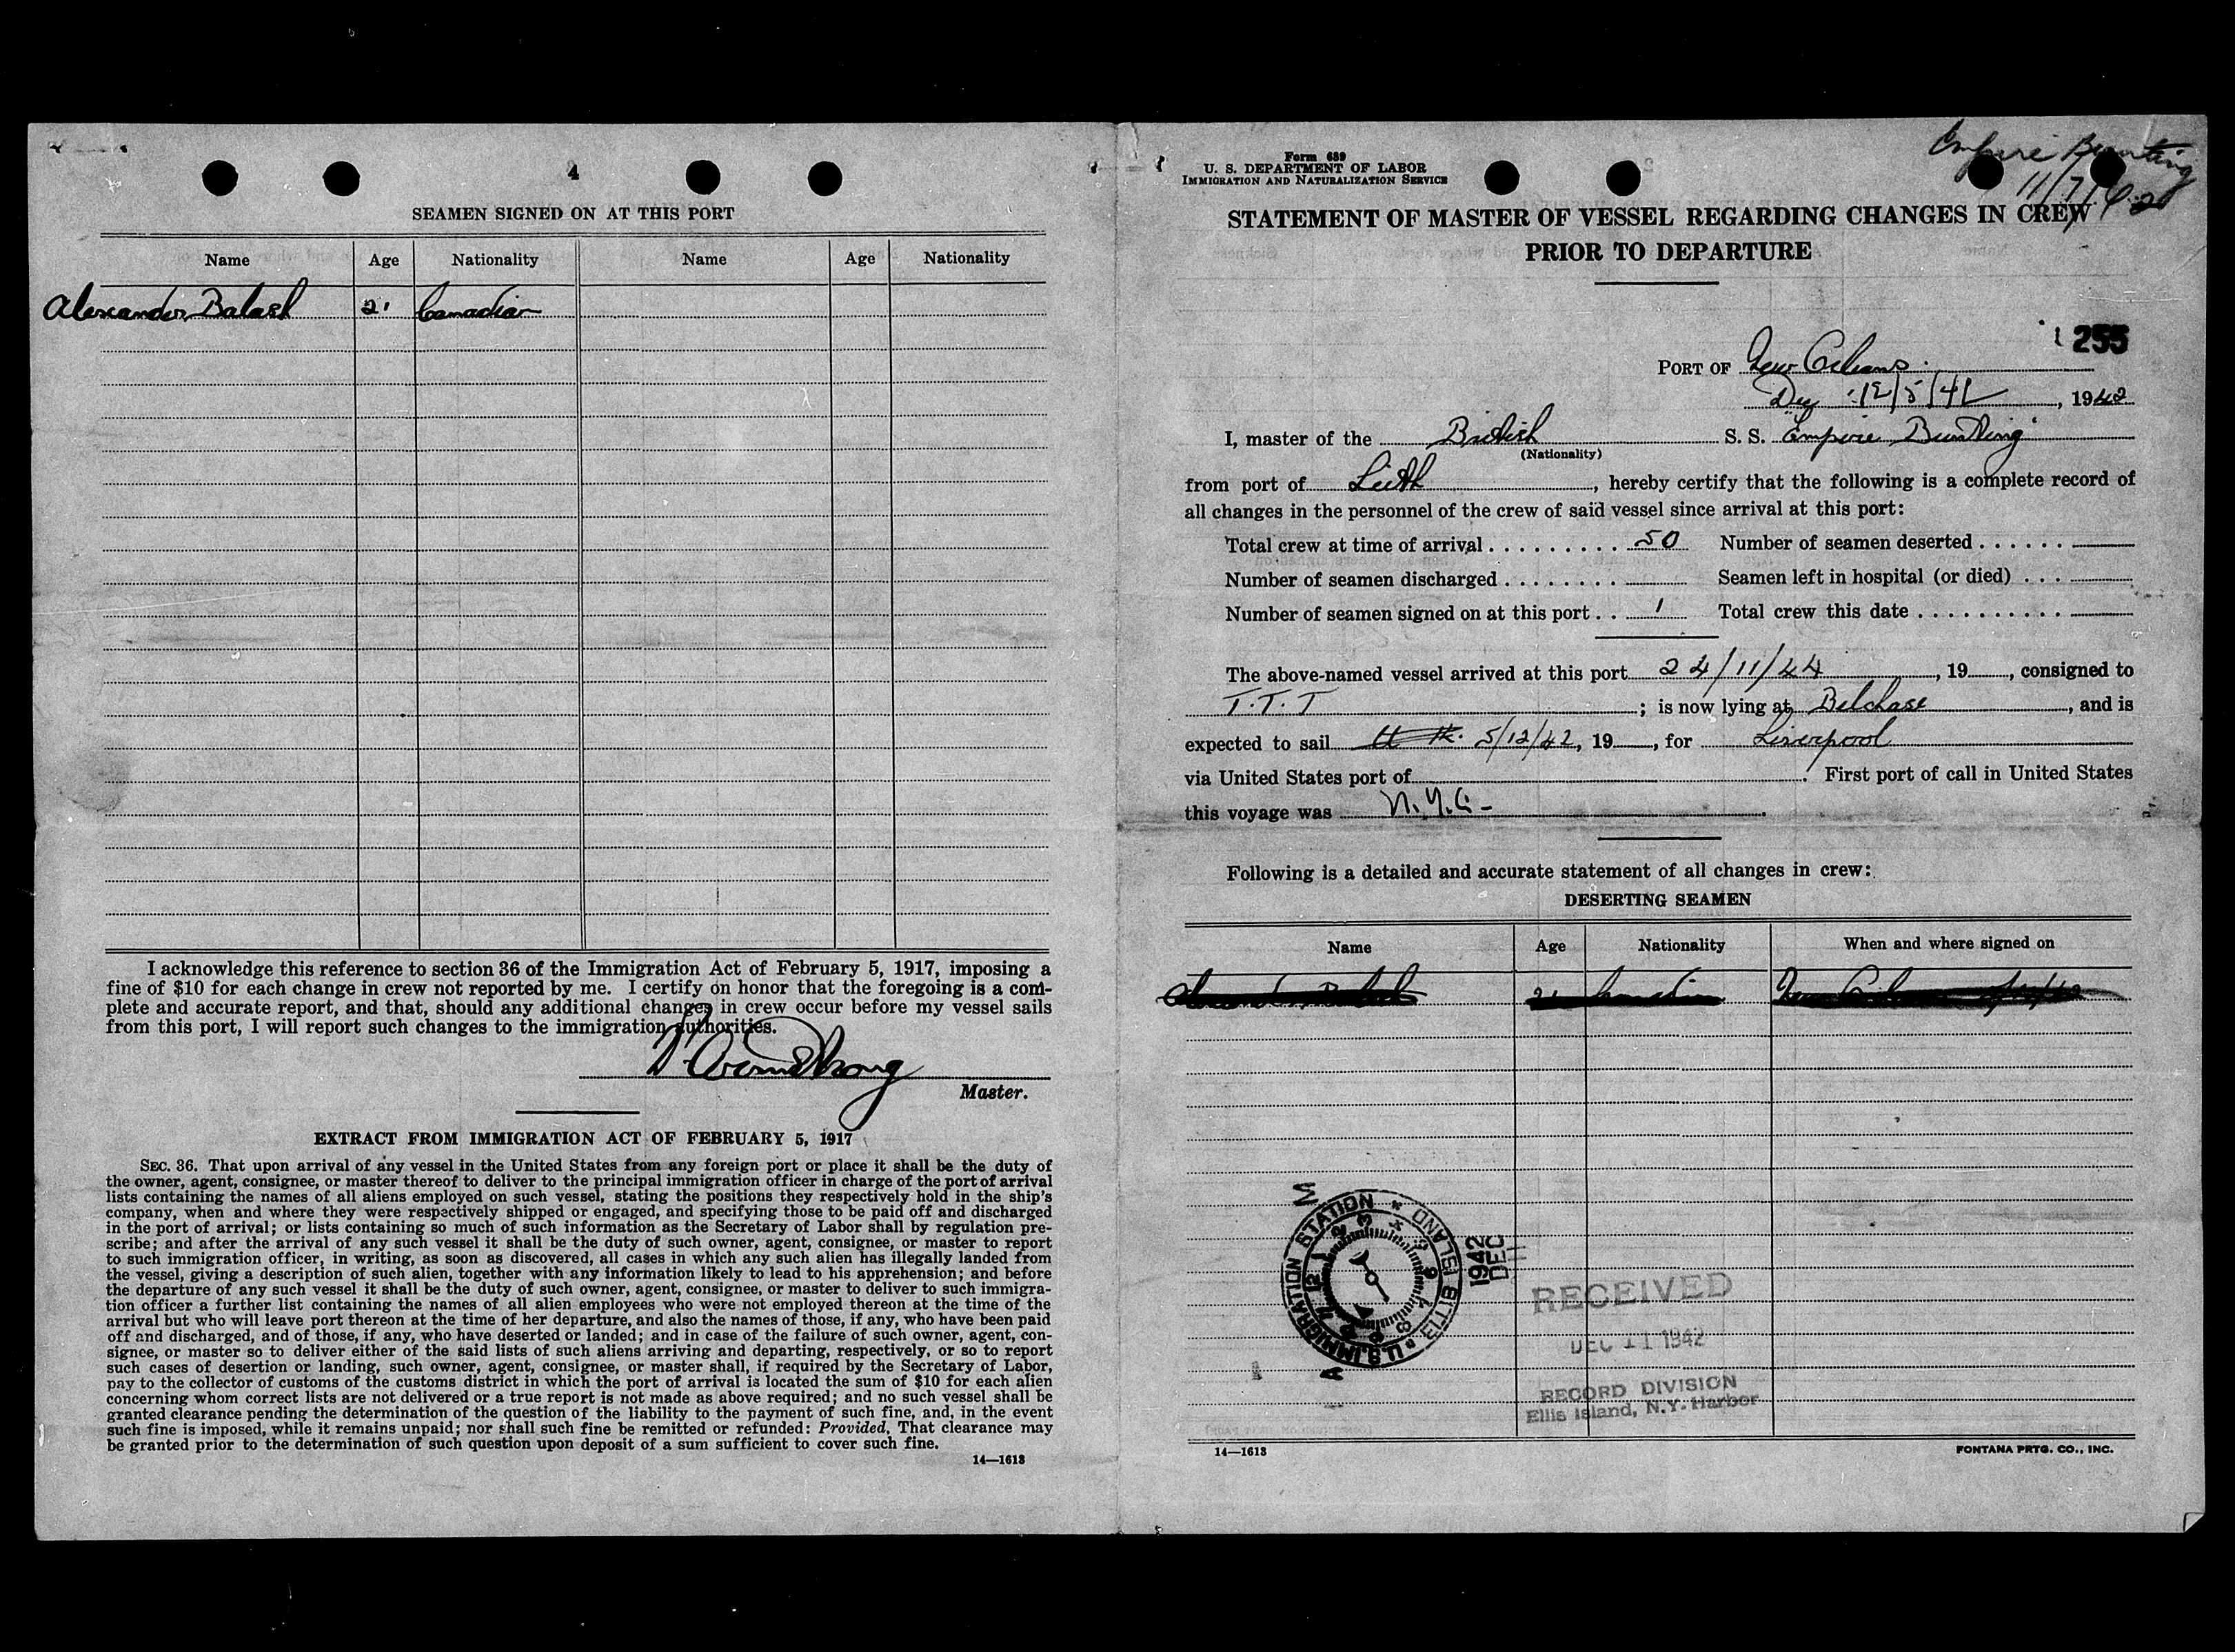 4
SEAMEN SIGNED ON AT THIS PORT
Name Age Nationality Name Age Nationality
Alexander Balash 21 Canadian
I acknowledge this reference to section 36 of the Immigration Act of February 5, 1917, imposing a
fine of $10 for each change in crew not reported by me. I certify on honor that the foregoing is a com-
plete and accurate report, and that, should any additional changes in crew occur before my vessel sails
from this port, I will report such changes to the immigration authorities.
Armstrong
Master.
EXTRACT FROM IMMIGRATION ACT OF FEBRUARY 5, 1917
SEC. 36. That upon arrival of any vessel in the United States from any foreign port or place it shall be the duty of
the owner, agent, consignee, or master thereof to deliver to the principal immigration officer in charge of the port of arrival
lists containing the names of all aliens employed on such vessel, stating the positions they respectively hold in the ship's
company, when and where they were respectively shipped or engaged, and specifying those to be paid off and discharged
in the port of arrival; or lists containing so much of such information as the Secretary of Labor shall by regulation pre-
scribe; and after the arrival of any such vessel it shall be the duty of such owner, agent, consignee, or master to report
to such immigration officer, in writing, as soon as discovered, all cases in which any such alien has illegally landed from
the vessel, giving a description of such alien, together with any information likely to lead to his apprehension; and before
the departure of any such vessel it shall be the duty of such owner, agent, consignee, or master to deliver to such immigra-
tion officer a further list containing the names of all alien employees who were not employed thereon at the time of the
arrival but who will leave port thereon at the time of her departure, and also the names of those, if any, who have been paid
off and discharged, and of those, if any, who have deserted or landed; and in case of the failure of such owner, agent, con-
signee, or master so to deliver either of the said lists of such aliens arriving and departing, respectively, or so to report
such cases of desertion or landing, such owner, agent, consignee, or master shall, if required by the Secretary of Labor,
pay to the collector of customs of the customs district in which the port of arrival is located the sum of $10 for each alien
concerning whom correct lists are not delivered or a true report is not made as above required; and no such vessel shall be
granted clearance pending the determination of the question of the liability to the payment of such fine, and, in the event
such fine is imposed, while it remains unpaid; nor shall such fine be remitted or refunded: Provided, That clearance may
be granted prior to the determination of such question upon deposit of a sum sufficient to cover such fine.
14—1613
Empire Bunting
11/7/42
Form 689
U. S. DEPARTMENT OF LABOR
IMMIGRATION AND NATURALIZATION SERVICE
STATEMENT OF MASTER OF VESSEL REGARDING CHANGES IN CREW
PRIOR TO DEPARTURE
255
PORT OF New Orleans
12/5/42, 1942
I, master of the British S. S. Empire Bunting
(Nationality)
from port of Leith, hereby certify that the following is a complete record of
all changes in the personnel of the crew of said vessel since arrival at this port:
Total crew at time of arrival 50 Number of seamen deserted
Number of seamen discharged Seamen left in hospital (or died)
Number of seamen signed on at this port 1 Total crew this date
The above-named vessel arrived at this port 24/11/44, 19, consigned to
T.T.T; is now lying at Belchase, and is
expected to sail 5/12/42, 19, for Liverpool
via United States port of. First port of call in United States
this voyage was N.Y.C.
Following is a detailed and accurate statement of all changes in crew:
DESERTING SEAMEN
Name Age Nationality When and where signed on
U.S. IMMIGRATION STATION * ELLIS ISLAND
A M
1942
DEC
11
RECEIVED
DEC 11 1942
RECORD DIVISION
Ellis Island, N.Y. Harbor
14—1613
FONTANA PRTG. CO., INC.